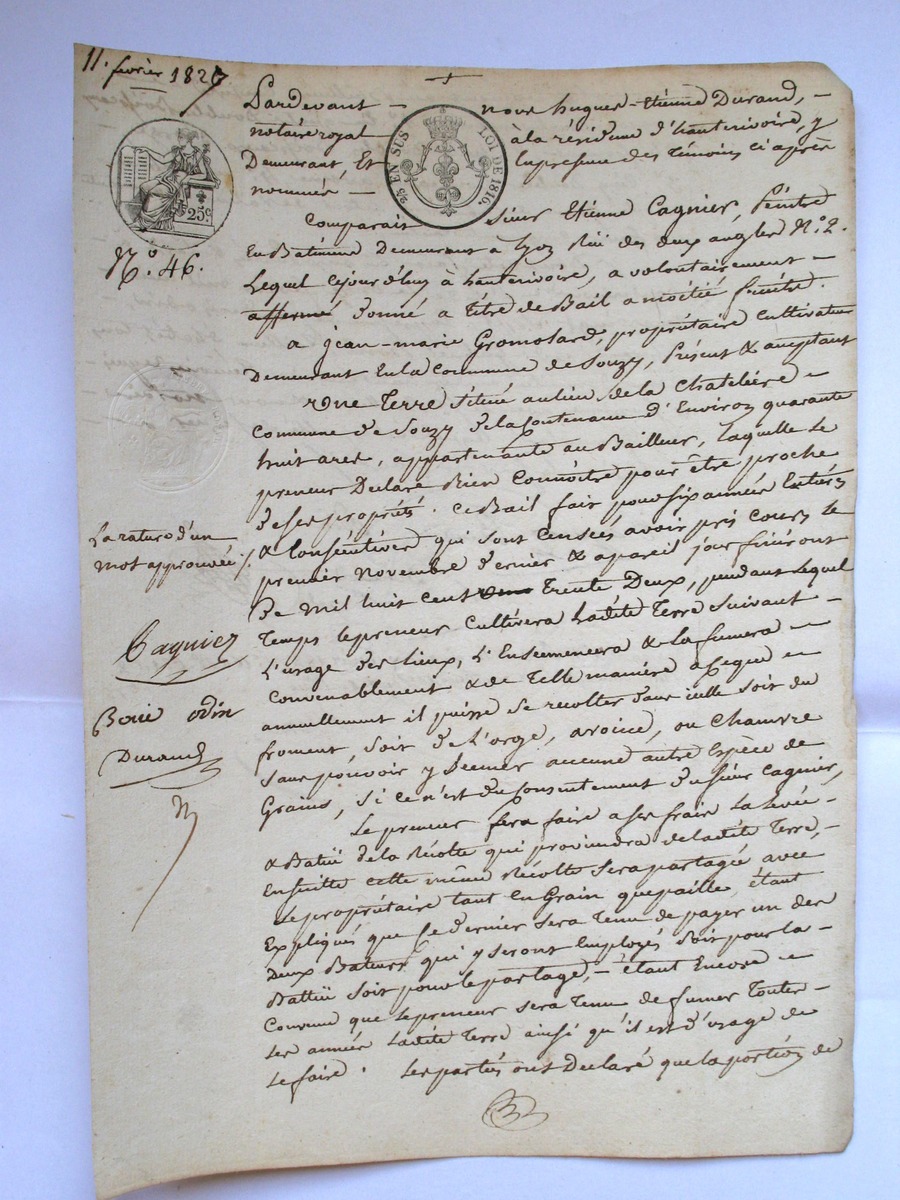 11. février 1827
Pardevant – nous hugues-Etienne Durand, –
notaire royal à la résidence d'hauterivoire, y
Demeurant, Et En presence des Témoins ci après
nommés –
25 EN SUS LOI DE 1816.
25c
N.o 46.
Comparait Sieur Etienne Cagnier, Peintre
En Batiment Demeurant à Lyon Rüe des deux angles N.o 2.
Lequel cejourd'huy à hauterivoire, a volontairement –
affermé donné a Titre de Bail a moitié fruits
a jean-marie Gromolard, propriétaire Cultivateur
Demeurant En la Commune de Souzy, Présent & acceptant
Une Terre Située au lieu de la Chatelière –
Commune de Souzy de la Contenance d'Environ quarante
huit ares, appartenante au Bailleur, Laquelle Le
preneur Declare Bien Connoitre pour être proche
de ses propriétés. Ce Bail fait pour six années Entières
& Consécutives qui sont Censées avoir pris Cours le
premier Novembre dernier & a pareil jour finiront
De Mil huit Cent Trente Deux, pendant Lequel
Temps le preneur Cultivera Ladite Terre Suivant –
L'usage des Lieux, L'Ensemencera & la fumera –
Convenablement & de Telle manière à ce que –
annuellement il puisse se recolter dans icelle soit du
froment, soit de L'orge, avoine, ou Chanvre
Sans pouvoir y Semer aucune autre Espèce de
Grains, Si ce n'est du Consentement du sieur Cagnier,
Le preneur fera faire a ses frais La Levée –
& Battüe de la Récolte qui proviendra de ladite Terre, –
Ensuitte cette même Récolte Sera partagée avec
Le propriétaire tant en Grain que paille, étant
Expliqués que Ce Dernier sera Tenu de payer un des
Deux Bateurs qui y seront Employés Soit pour la –
Battüe soit pour le partage, – étant Encore –
Convenu que le preneur sera Tenu de fumer Toutes –
Les années Ladite Terre ainsi qu'il est d'usage de
Le faire. Les parties ont Declaré que la portion de
La rature d'un
mot approuvée /.
Cagnier
odin
Durand